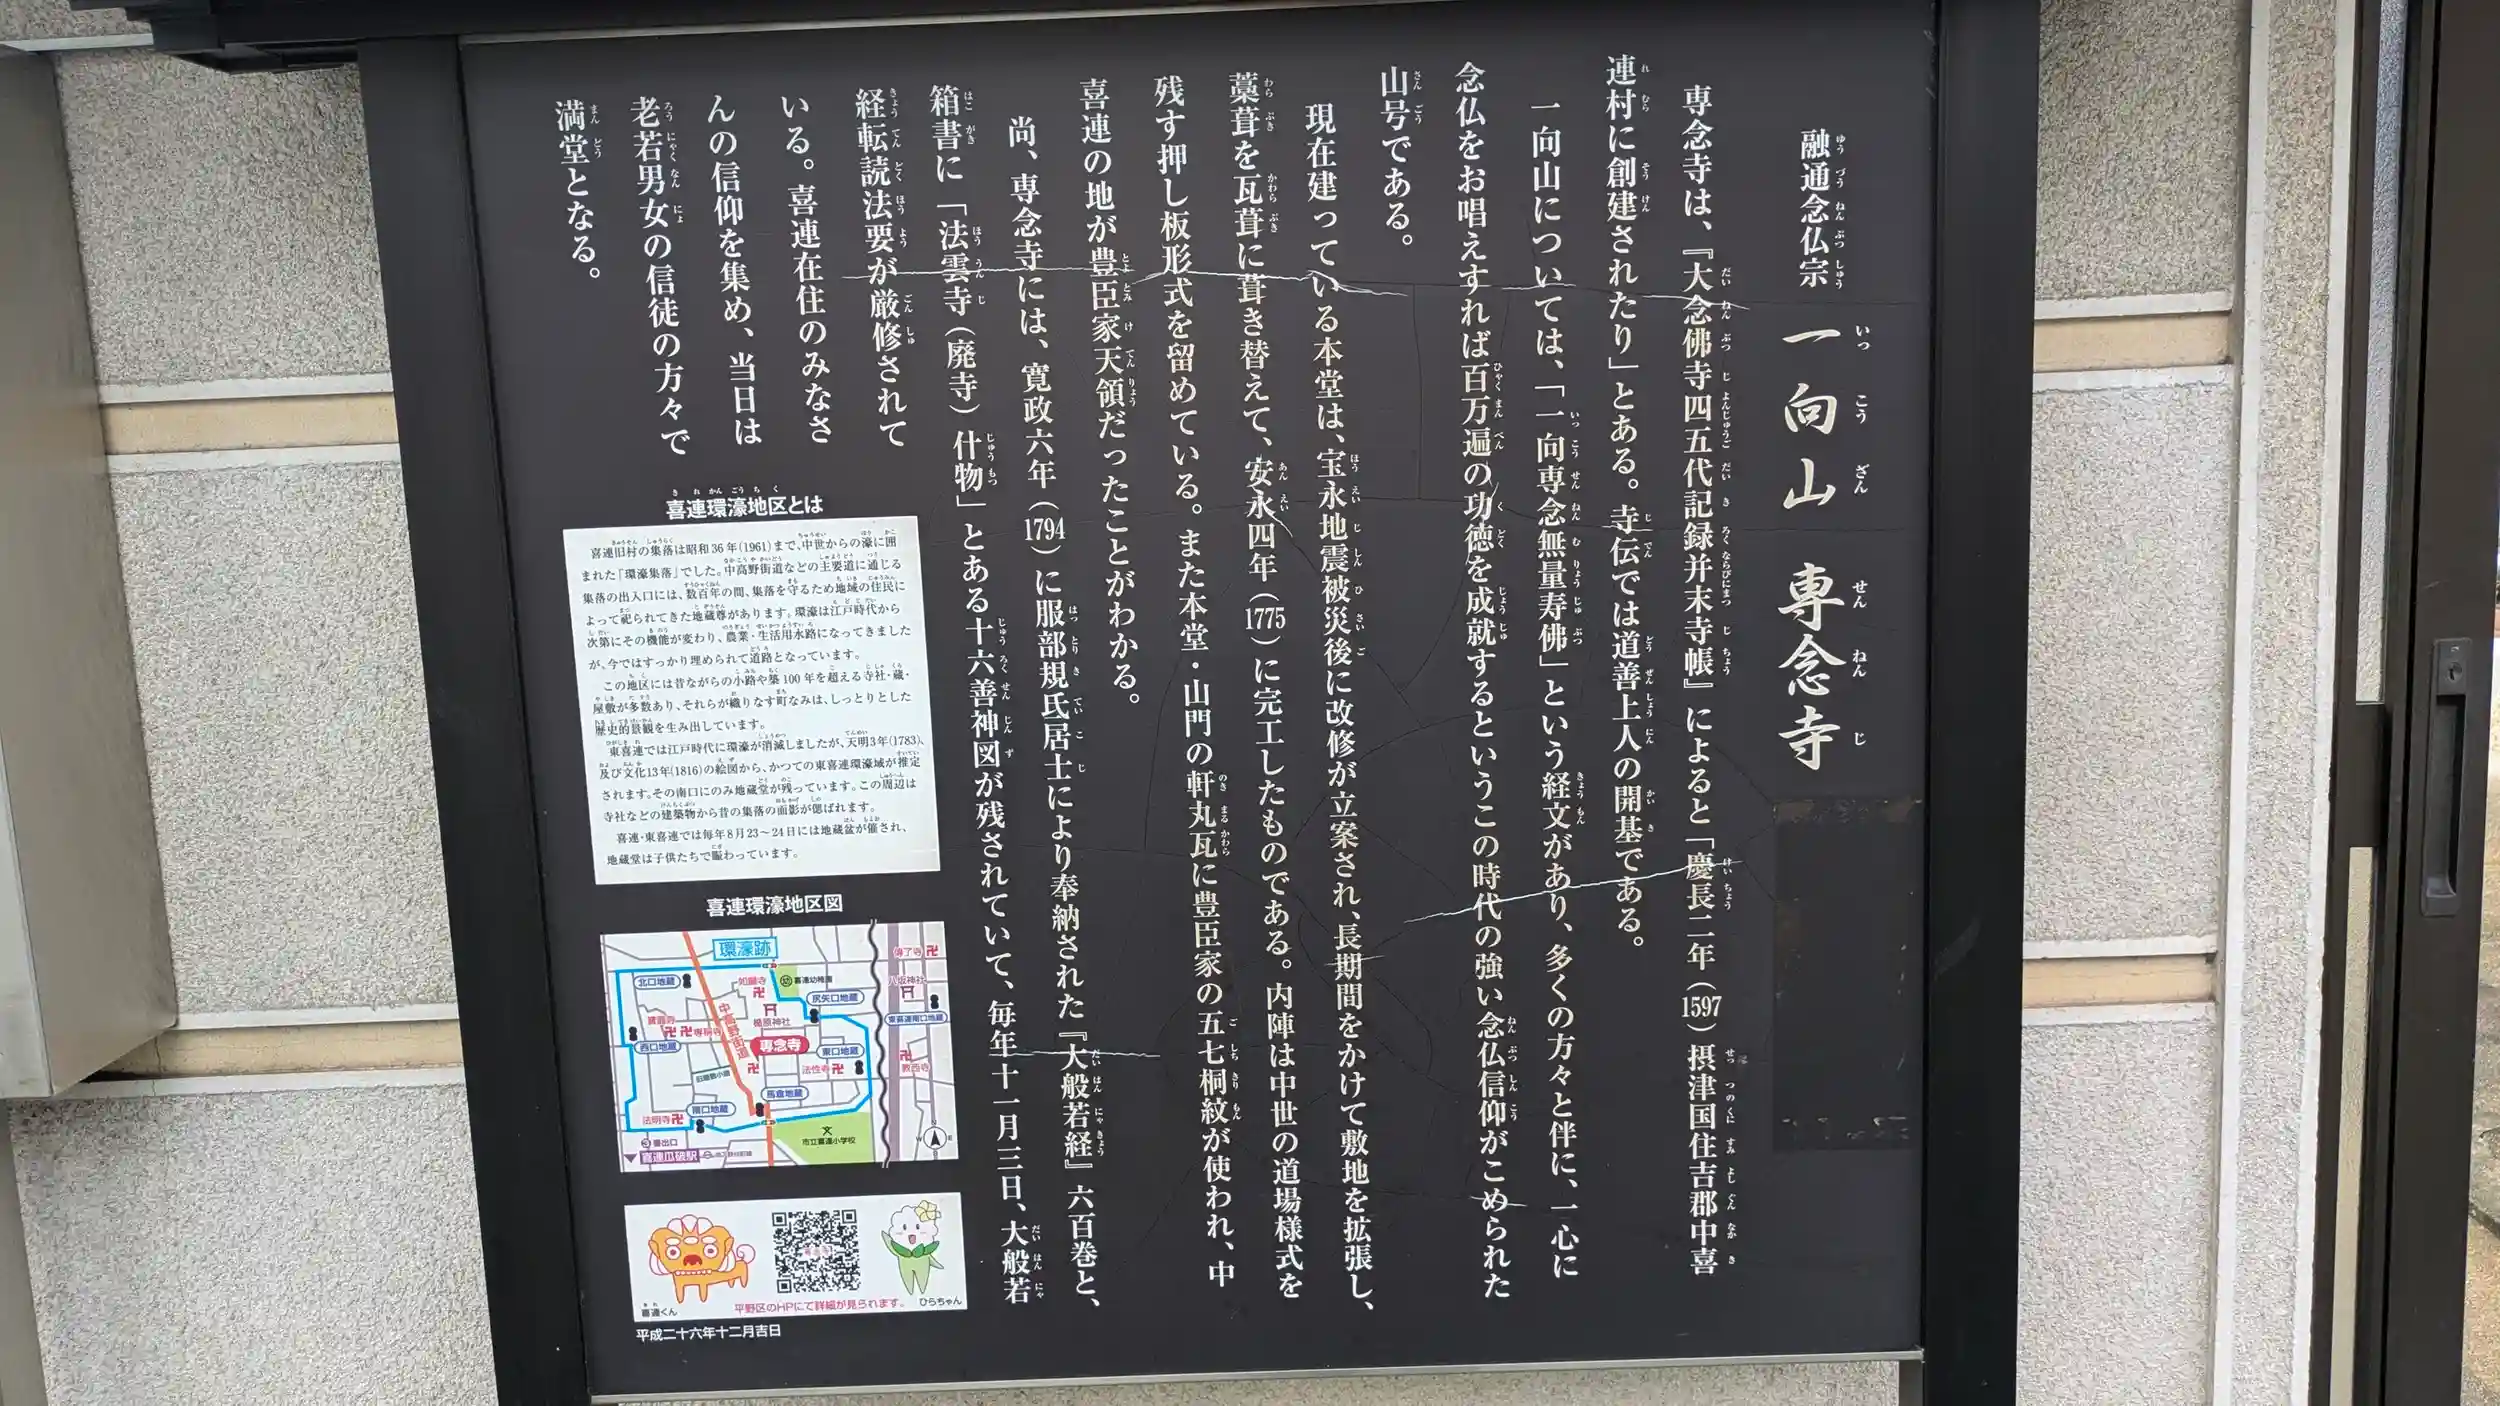 融通念仏宗 一向山 専念寺
専念寺は、『大念佛寺四五代記録并末寺帳』によると「慶長二年（1597）摂津国住吉郡中喜
連村に創建されたり」とある。寺伝では道善上人の開基である。
一向山については、「一向専念無量寿佛」という経文があり、多くの方々と伴に、一心に
念仏をお唱えすれば百万遍の功徳を成就するというこの時代の強い念仏信仰がこめられた
山号である。
現在建っている本堂は、宝永地震被災後に改修が立案され、長期間をかけて敷地を拡張し、
藁葺を瓦葺に葺き替えて、安永四年（1775）に完工したものである。内陣は中世の道場様式を
残す押し板形式を留めている。また本堂・山門の軒丸瓦に豊臣家の五七桐紋が使われ、中
喜連の地が豊臣家天領だったことがわかる。
尚、専念寺には、寛政六年（1794）に服部規氏居士により奉納された『大般若経』六百巻と、
箱書に「法雲寺（廃寺）什物」とある十六善神図が残されていて、毎年十一月三日、大般若
経転読法要が厳修されて
いる。喜連在住のみなさ
んの信仰を集め、当日は
老若男女の信徒の方々で
満堂となる。
喜連環濠地区とは
喜連旧村の集落は昭和36年(1961)まで、中世からの濠に囲
まれた「環濠集落」でした。中高野街道などの主要道に通じる
集落の出入口には、数百年の間、集落を守るため地域の住民に
よって祀られてきた地蔵尊があります。環濠は江戸時代から
次第にその機能が変わり、農業・生活用水路になってきました
が、今ではすっかり埋められて道路となっています。
この地区には昔ながらの小路や築100年を超える寺社・蔵・
屋敷が多数あり、それらが織りなす町なみは、しっとりとした
歴史的景観を生み出しています。
東喜連では江戸時代に環濠が消滅しましたが、天明3年(1783)、
及び文化13年(1816)の絵図から、かつての東喜連環濠域が推定
されます。その南口にのみ地蔵堂が残っています。この周辺は
寺社などの建築物から昔の集落の面影が偲ばれます。
喜連・東喜連では毎年8月23～24日には地蔵盆が催され、
地蔵堂は子供たちで賑わっています。
喜連環濠地区図
環濠跡
北口地蔵
如願寺
喜連幼稚園
尻矢口地蔵
八坂神社
東喜連南口地蔵
楯原神社
専称寺
西口地蔵
中高野街道
専念寺
東口地蔵
法性寺
教西寺
馬倉地蔵
南口地蔵
法明寺
市立喜連小学校
③番出口
喜連瓜破駅
喜連くん
平野区のHPにて詳細が見られます。
ひらちゃん
平成二十六年十二月吉日